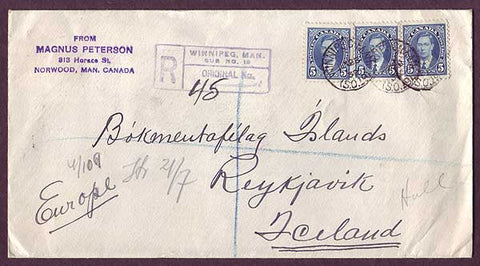 FROM
MAGNUS PETERSON
313 Horace St.
NORWOOD, MAN. CANADA
R
WINNIPEG, MAN.
SUB NO. 10
ORIGINAL No.
45
CANADA CANADA CANADA
5 5 5 5 5 5
Bókmentafélag Íslands
4/109 21/7
Reykjavik
Hull
Europe
Iceland